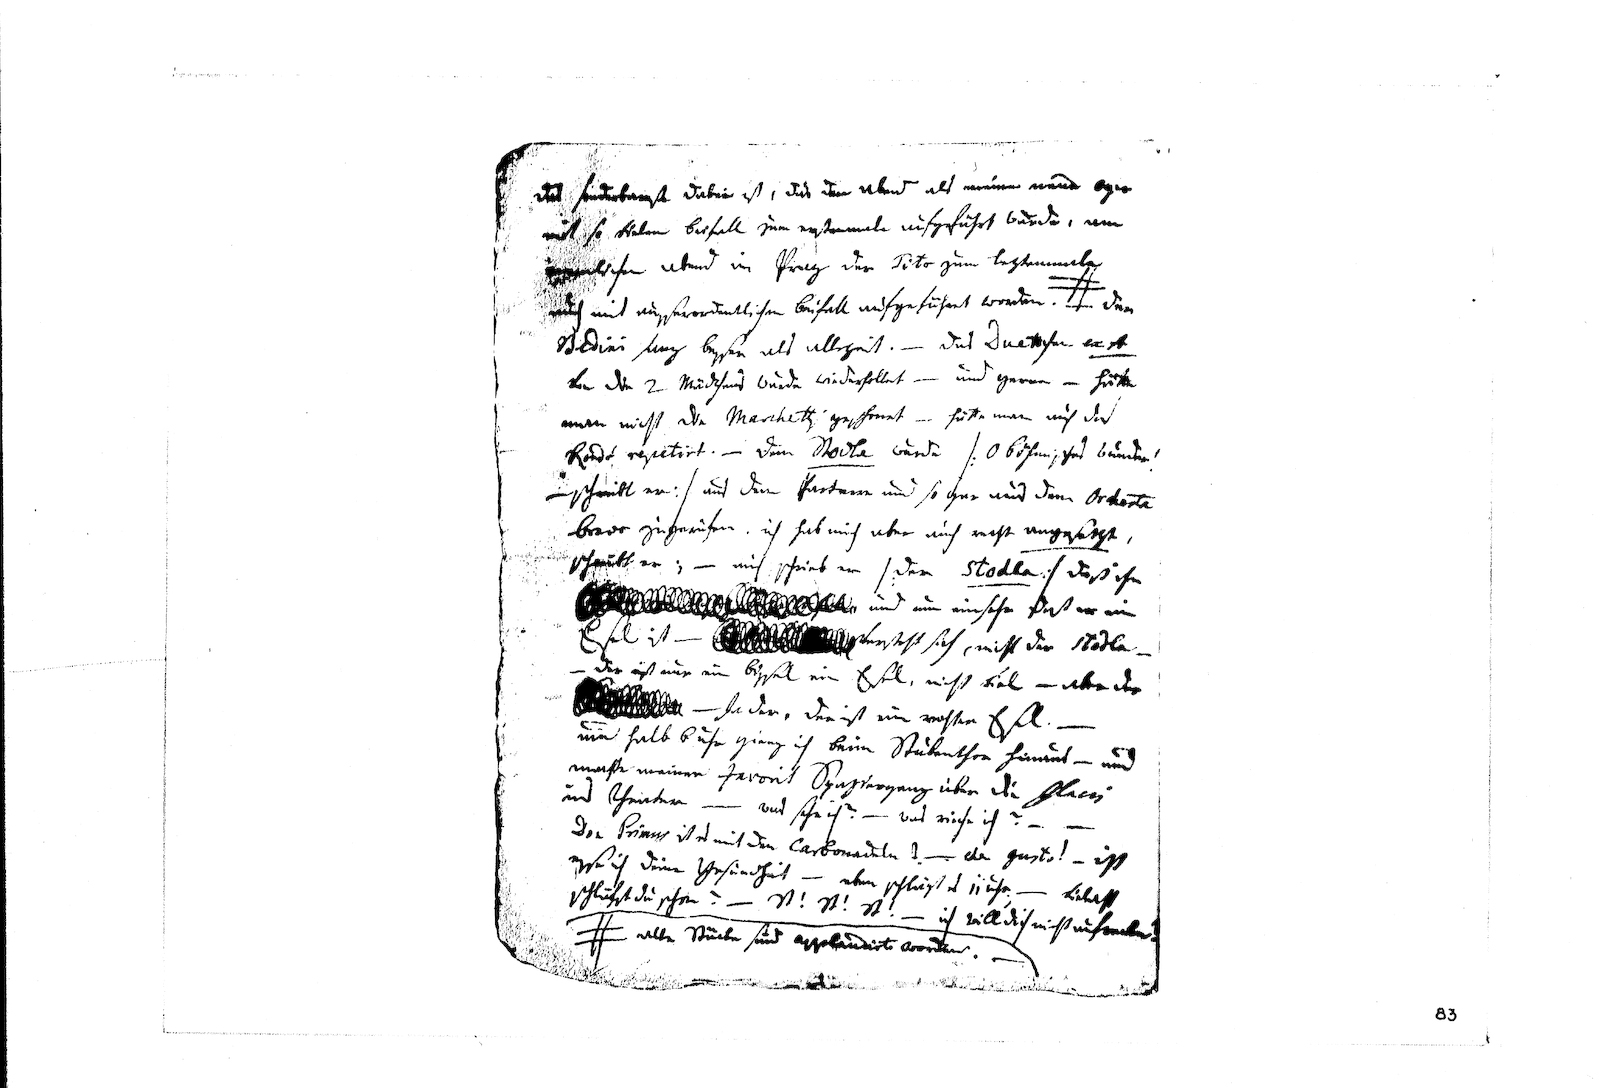 das sonderbarste dabei ist, das den abend als meine neue oper
mit so vielen beifall zum erstenmale aufgeführt wurde, am
nemlichen abend in Prag der Tito zum letztenmale
auch mit ausserordentlichen beifall aufgeführet worden. ╫ der
Bedini sang besser als allezeit. — das Duettchen ex A
von die 2 Mädchens wurde wiederhollet — und gerne — hätte
man nicht die Marchetti geschonet — hätte man auch das
Rondò repetirt. — dem Stodla wurde /: O böhmisches wunder!
— schreibt er :/ aus dem Parterre und so gar aus dem Orchestre
bravo zugerufen. ich hab mich aber auch recht angesezt,
schreibt er; — auch schrieb er /: der Stodla :/ daß ihn
und nun einsehe daß er ein
Esel ist — versteht sich, nicht der Stodla —
— der ist nur ein bissel ein Esel, nicht viel — aber der
— Ja der, der ist ein rechter Esel. —
um halb 6 uhr gieng ich beim Stubenthor hinaus — und
machte meinen favorit Spaziergang über die Glacis
ins Theater — was sehe ich? — was rieche ich? — —
Don Primus ist es mit den Carbonadeln! — che gusto! — izt
esse ich deine Gesundheit — eben schlägt es 11 uhr; — vieleicht
schläfst du schon? — St! St! St! — ich will dich nicht aufwecken!
╫ alle Stücke sind applaudirt worden. —
83